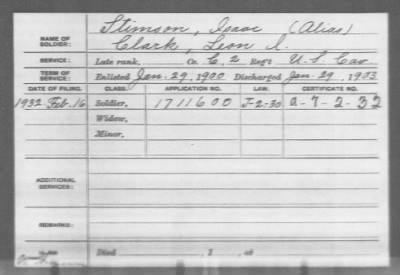 Stimson, Isaac (Alias)
NAME OF SOLDIER: Clark, Leon I.
SERVICE: Late rank, Co. C, 2 Reg't U.S. Cav
TERM OF SERVICE: Enlisted Jan. 29, 1900 Discharged Jan. 29, 1903
DATE OF FILING. CLASS. APPLICATION NO. LAW. CERTIFICATE NO.
1932 Feb. 16 Soldier, 1711600 J-2-30 a-7-2-32
Widow,
Minor,
ADDITIONAL SERVICES:
REMARKS:
Died , 1 , at